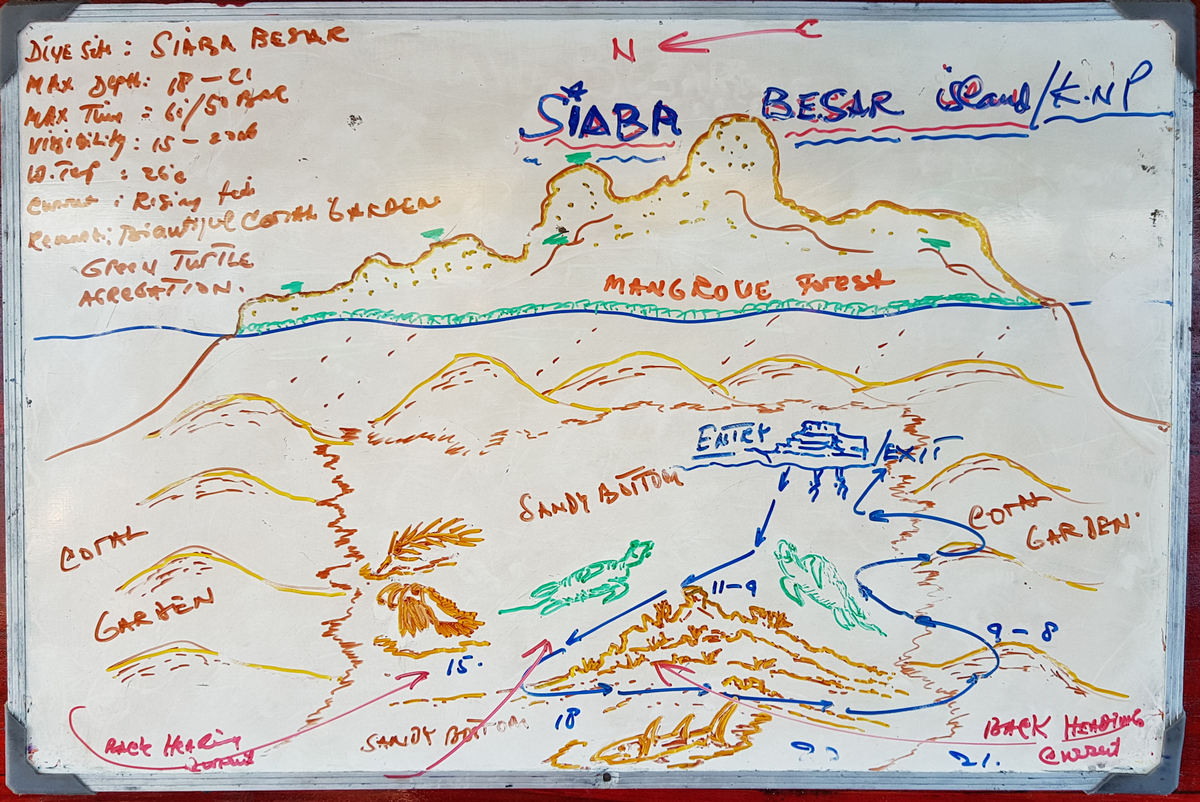 DIVE Site : SIABA BESAR
MAX Depth : 18 – 21
MAX Time : 60/50 BAR
Visibility : 15 – 20m
W.Temp : 26°c
Current : Rising tide
Remark : Beautiful CORAL GARDEN
GREEN TURTLE
AGREGATION.
N
SIABA BESAR island/K.NP
MANGROVE FOREST
ENTRY /EXIT
SANDY BOTTOM
CORAL
GARDEN
CORAL
GARDEN.
11–9
9–8
15.
18
SANDY BOTTOM
BACK HEADING
CURRENT
BACK HEADING
Current
21.